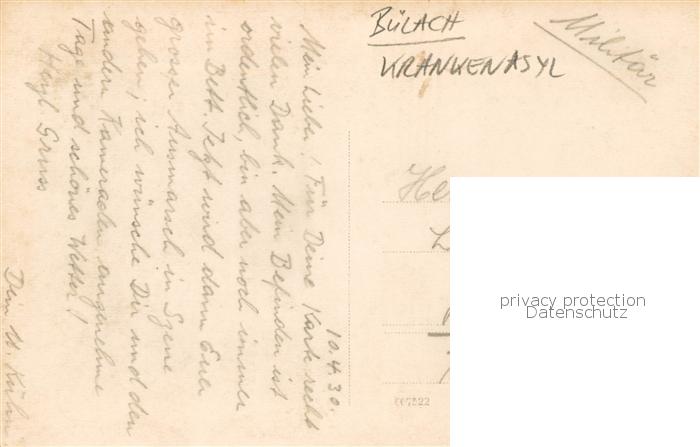 BÜLACH
KRANKENASYL
Militär
10.4.30.
Mein Lieber! Für Deine Karte recht
vielen Dank. Mein Befinden ist
ordentlich, bin aber noch immer
im Bett. Jetzt wird dann Euer
grosser Ausmarsch in Szene
gehen; ich wünsche Dir und den
andern Kameraden angenehme
Tage und schönes Wetter!
Herzl Gruss
Dein U. Kuhn
He
privacy protection
Datenschutz
607522